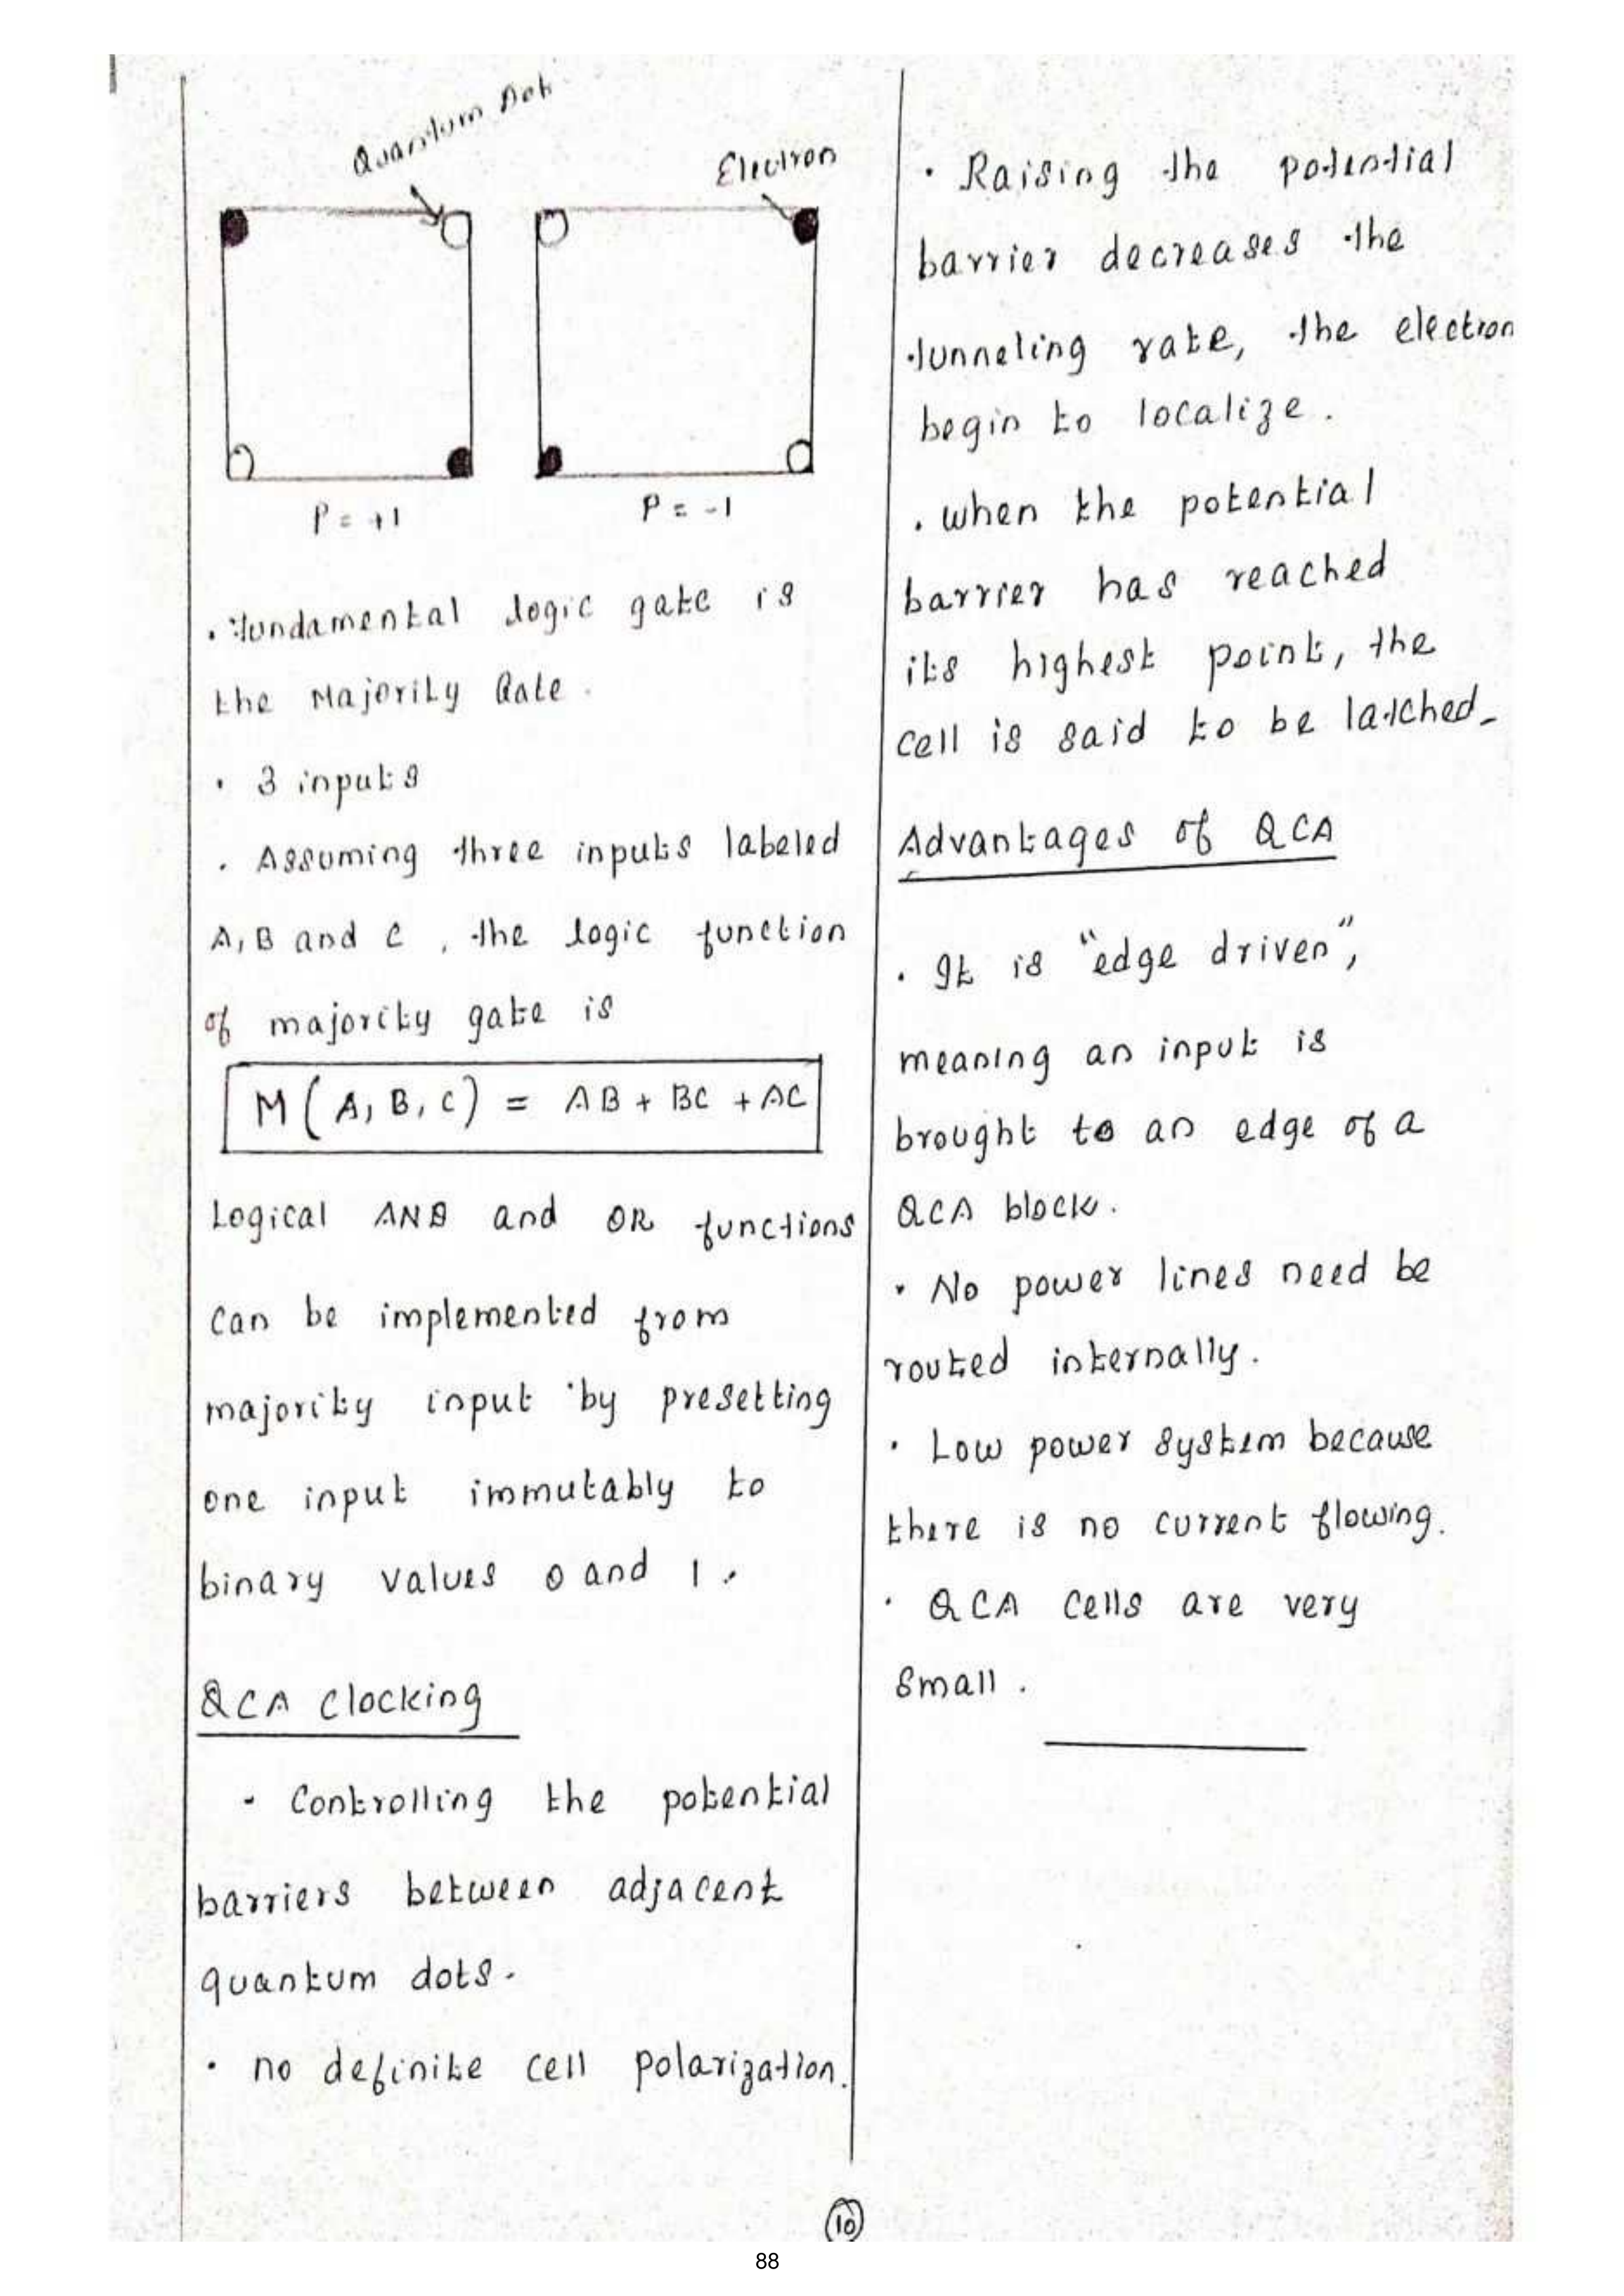 Quantum Dot
Electron
P = +1
P = -1
. fundamental logic gate is
the Majority Gate.
. 3 inputs
. Assuming three inputs labeled
A, B and C , the logic function
of majority gate is
M ( A, B, C ) = AB + BC + AC
Logical AND and OR functions
can be implemented from
majority input by presetting
one input immutably to
binary values 0 and 1.
QCA Clocking
- Controlling the potential
barriers between adjacent
quantum dots.
. no definite cell polarization.
. Raising the potential
barrier decreases the
tunneling rate, the electron
begin to localize.
. when the potential
barrier has reached
its highest point, the
cell is said to be latched.
Advantages of QCA
. It is "edge driven",
meaning an input is
brought to an edge of a
QCA block.
. No power lines need be
routed internally.
. Low power system because
there is no current flowing.
. QCA cells are very
small.
10
88